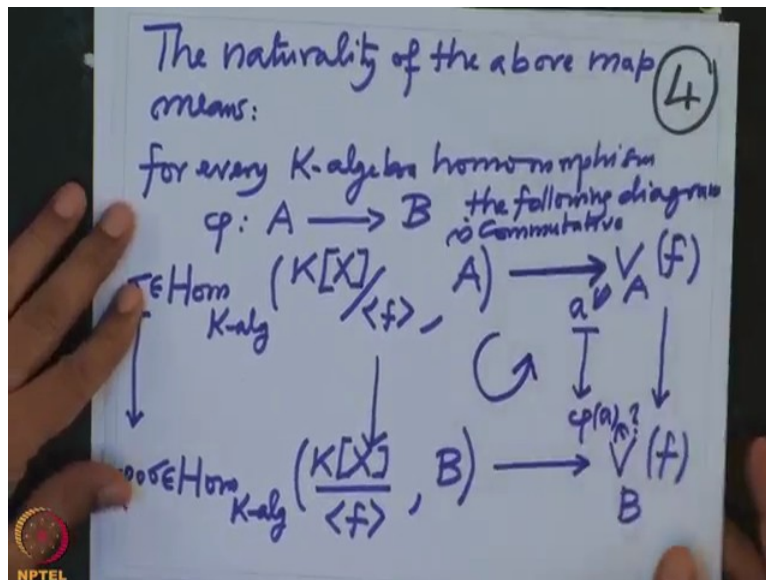 The naturality of the above map
4
means:
for every K-algebra homomorphism
φ: A ⟶ B the following diagram
is Commutative
σ∈Hom K-alg (K[X]/<f>, A) ⟶ V_A (f)
a
φ(a) ∈?
φ∘σ∈Hom K-alg (K[X]/<f>, B) ⟶ V_B (f)
NPTEL